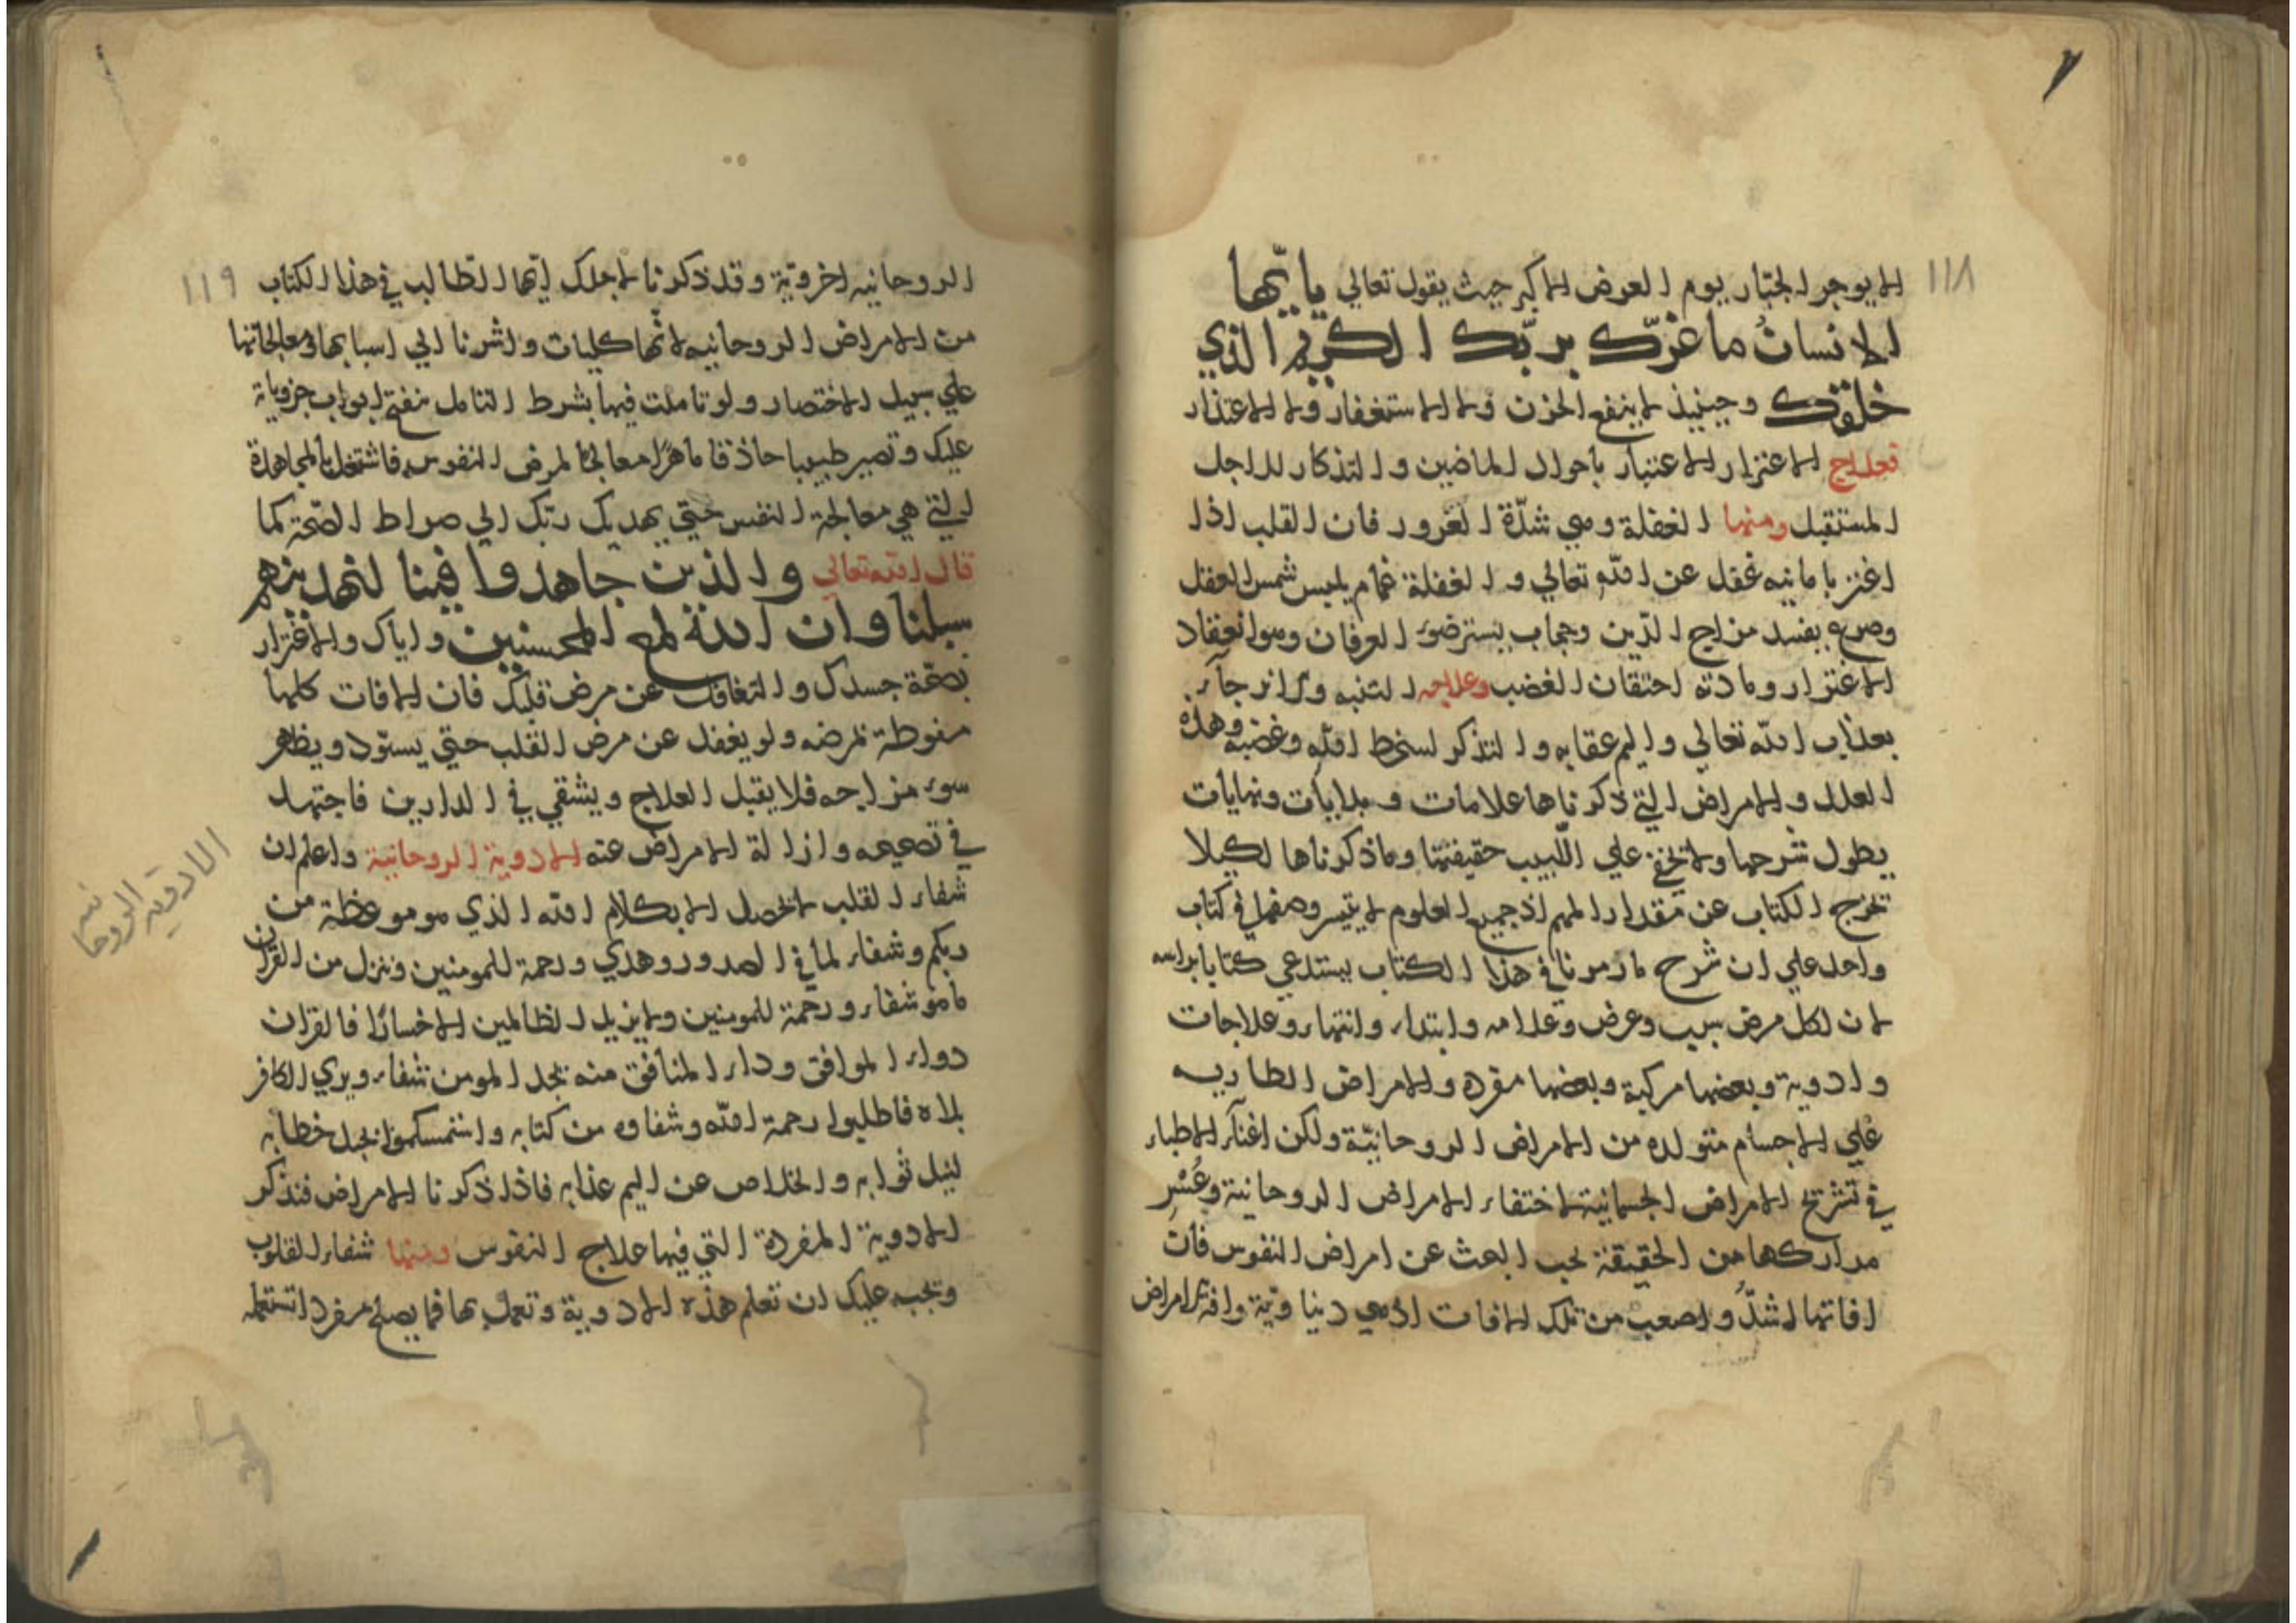 ١١٨
الا بوجر الجبار يوم العرض الاكبر حيث يقول تعالي يا ايّها
الانسانُ ما غرّك بربّك الكريم الذي
خلقك وحينيذ لا ينفع الحزن ولا الاستغفار ولا الاعتذار
فعلاج الاغترار الاعتبار باحوال الماضين والتذكار للاجل
المستقبل ومنها الغفلة وهي شدّة الغرور فان القلب اذا
اغتر بامانيه غفل عن الله تعالي والغفلة غمام يلبس شمس العقل
وصرع يفسد مزاج الدّين وحجاب يستر ضوء العرفان وهو انعقاد
الاغترار ومادته احتقان الغضب وعلاجه التنبه والانزجآر
بعذاب الله تعالي واليم عقابه والتذكر لسخط الله وغضبه وهذه
العلل والامراض التي ذكرناها علامات وبدايات ونهايات
يطول شرحها ولا تخفي علي اللّبيب حقيقتها وما ذكرناها لكيلا
تخرج الكتاب عن مقدار المهم اذ جميع العلوم لا يتيسر وصفها في كتاب
واحد علي ان شرح ما رمزنا في هذا الكتاب يستدعي كتابا براسه
لان لكل مرض سبب وعرض وعلامه وابتداء وانتهاء وعلاجات
وادوية وبعضها مركبة وبعضها مفرده والامراض الطاريه
علي الاجسام متولده من الامراض الروحانيّة ولكن الاطباء
في تشريح الامراض الجسمانية لاختفاء الامراض الروحانية وعُسْر
مداركها من الحقيقة يجب البحث عن امراض النفوس فان
افاتها اشدُّ واصعب من تلك الافات اذ هي دنياويّة وافة الامراض
١١٩
الروحانيه اخرويّة وقد ذكرنا لاجلك ايّها الطّالب في هذا الكتاب
من الامراض الروحانيه لانّها كليات واشرنا الي اسبابها ومعالجاتها
علي سبيل الاختصار ولو تاملت فيها بشرط التامل تنفتح ابواب جزوياته
عليك وتصير طبيبا حاذقا ماهرًا معالجا لمرض النفوس فاشتغل بالمجاهدة
التي هي معالجة النفس حتي يهديك ربّك الي صراط الصّحة كما
قال الله تعالي والذين جاهدوا فينا لنهدينهم
سبلنا وان الله لمع المحسنين واياك والاغترار
بصحّة جسدك والتغافل عن مرض قلبك فان الافات كلها
منوطة بمرضه ولو يغفل عن مرض القلب حتي يسوّد ويظهر
سوء مزاجه فلا يقبل العلاج ويشقي في الدارين فاجتهد
في تصحيحه وازالة الامراض عنه الادوية الروحانية واعلم ان
شفاء القلب لا تحصل الا بكلام الله الذي هو موعظة من
ربكم وشفاء لما في الصدور وهدي ورحمة للمومنين وننزل من القران
ما هو شفاء ورحمة للمومنين ولا يزيد الظالمين الا خسارًا فالقران
دواء الموافق وداء المنافق منه يجد المومن شفاء ويري الكافر
بلاه فاطلبوا رحمة الله وشفاوه من كتابه واستمسكموا بحبل خطابه
لنيل ثوابه والخلاص عن اليم عذابه فاذا ذكرنا الامراض فنذكر
الادوية المفردة التي فيها علاج النفوس ومنها شفاء القلوب
وتجب عليك ان تعلم هذه الادوية وتعمل بها فما يصلح مفردا تستعمله
الادوية الروحانية